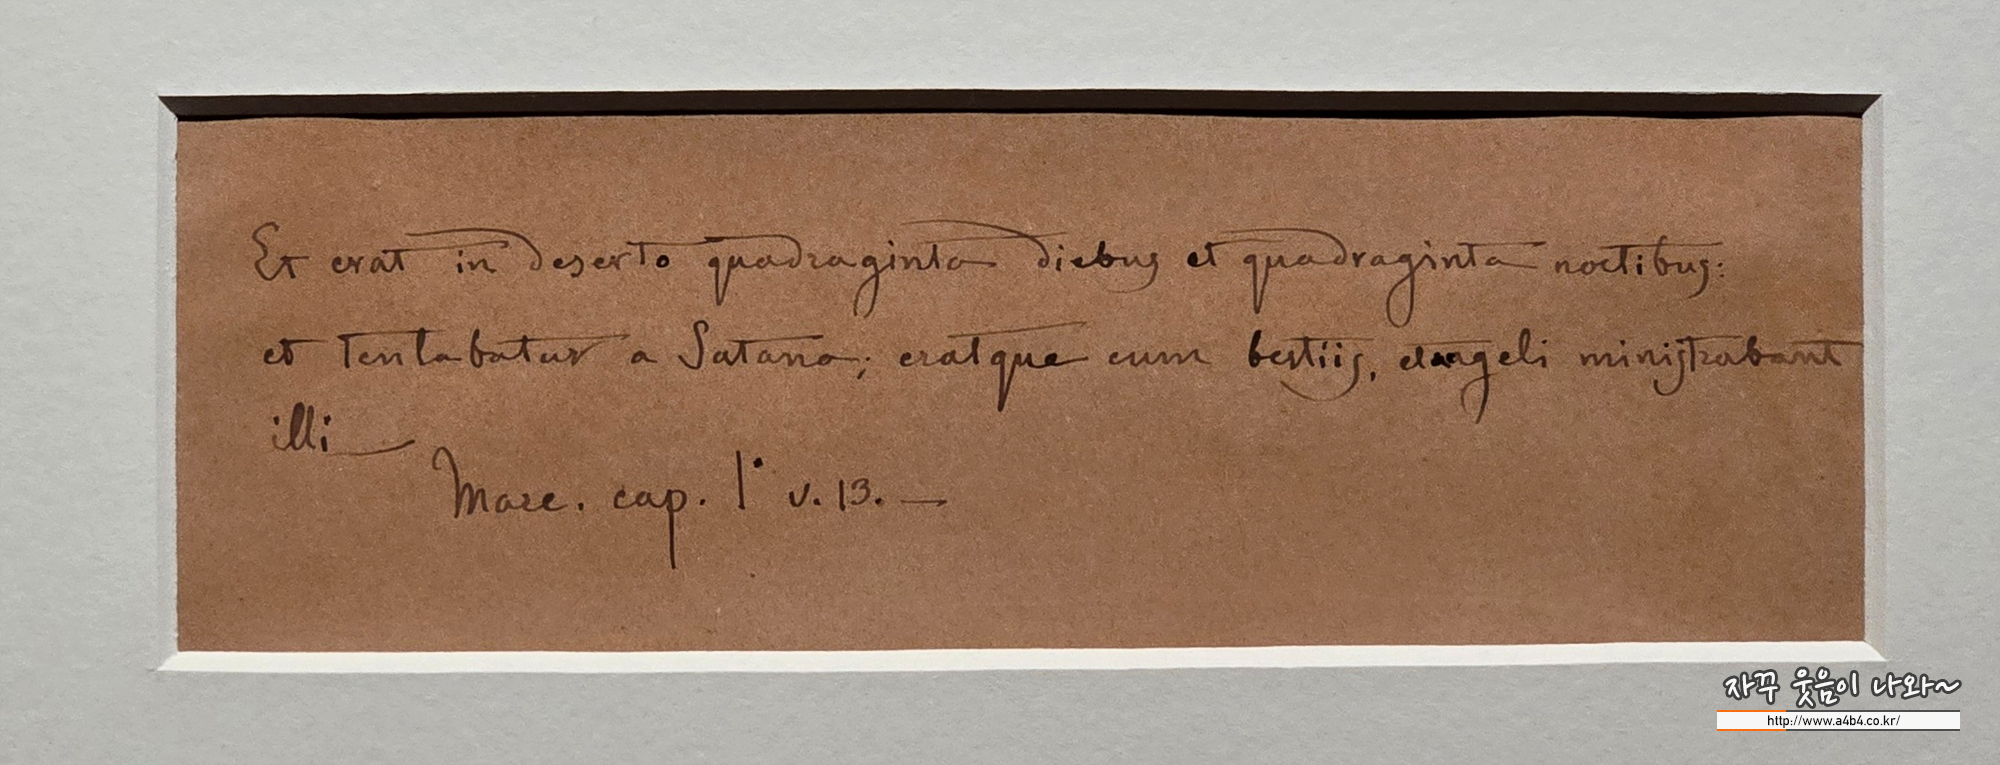 Et erat in deserto quadraginta diebus et quadraginta noctibus:
et tentabatur a Satana; eratque cum bestiis, et angeli ministrabant
illi
Marc. cap. 1° v. 13. —
자꾸 웃음이 나와~
http://www.a4b4.co.kr/